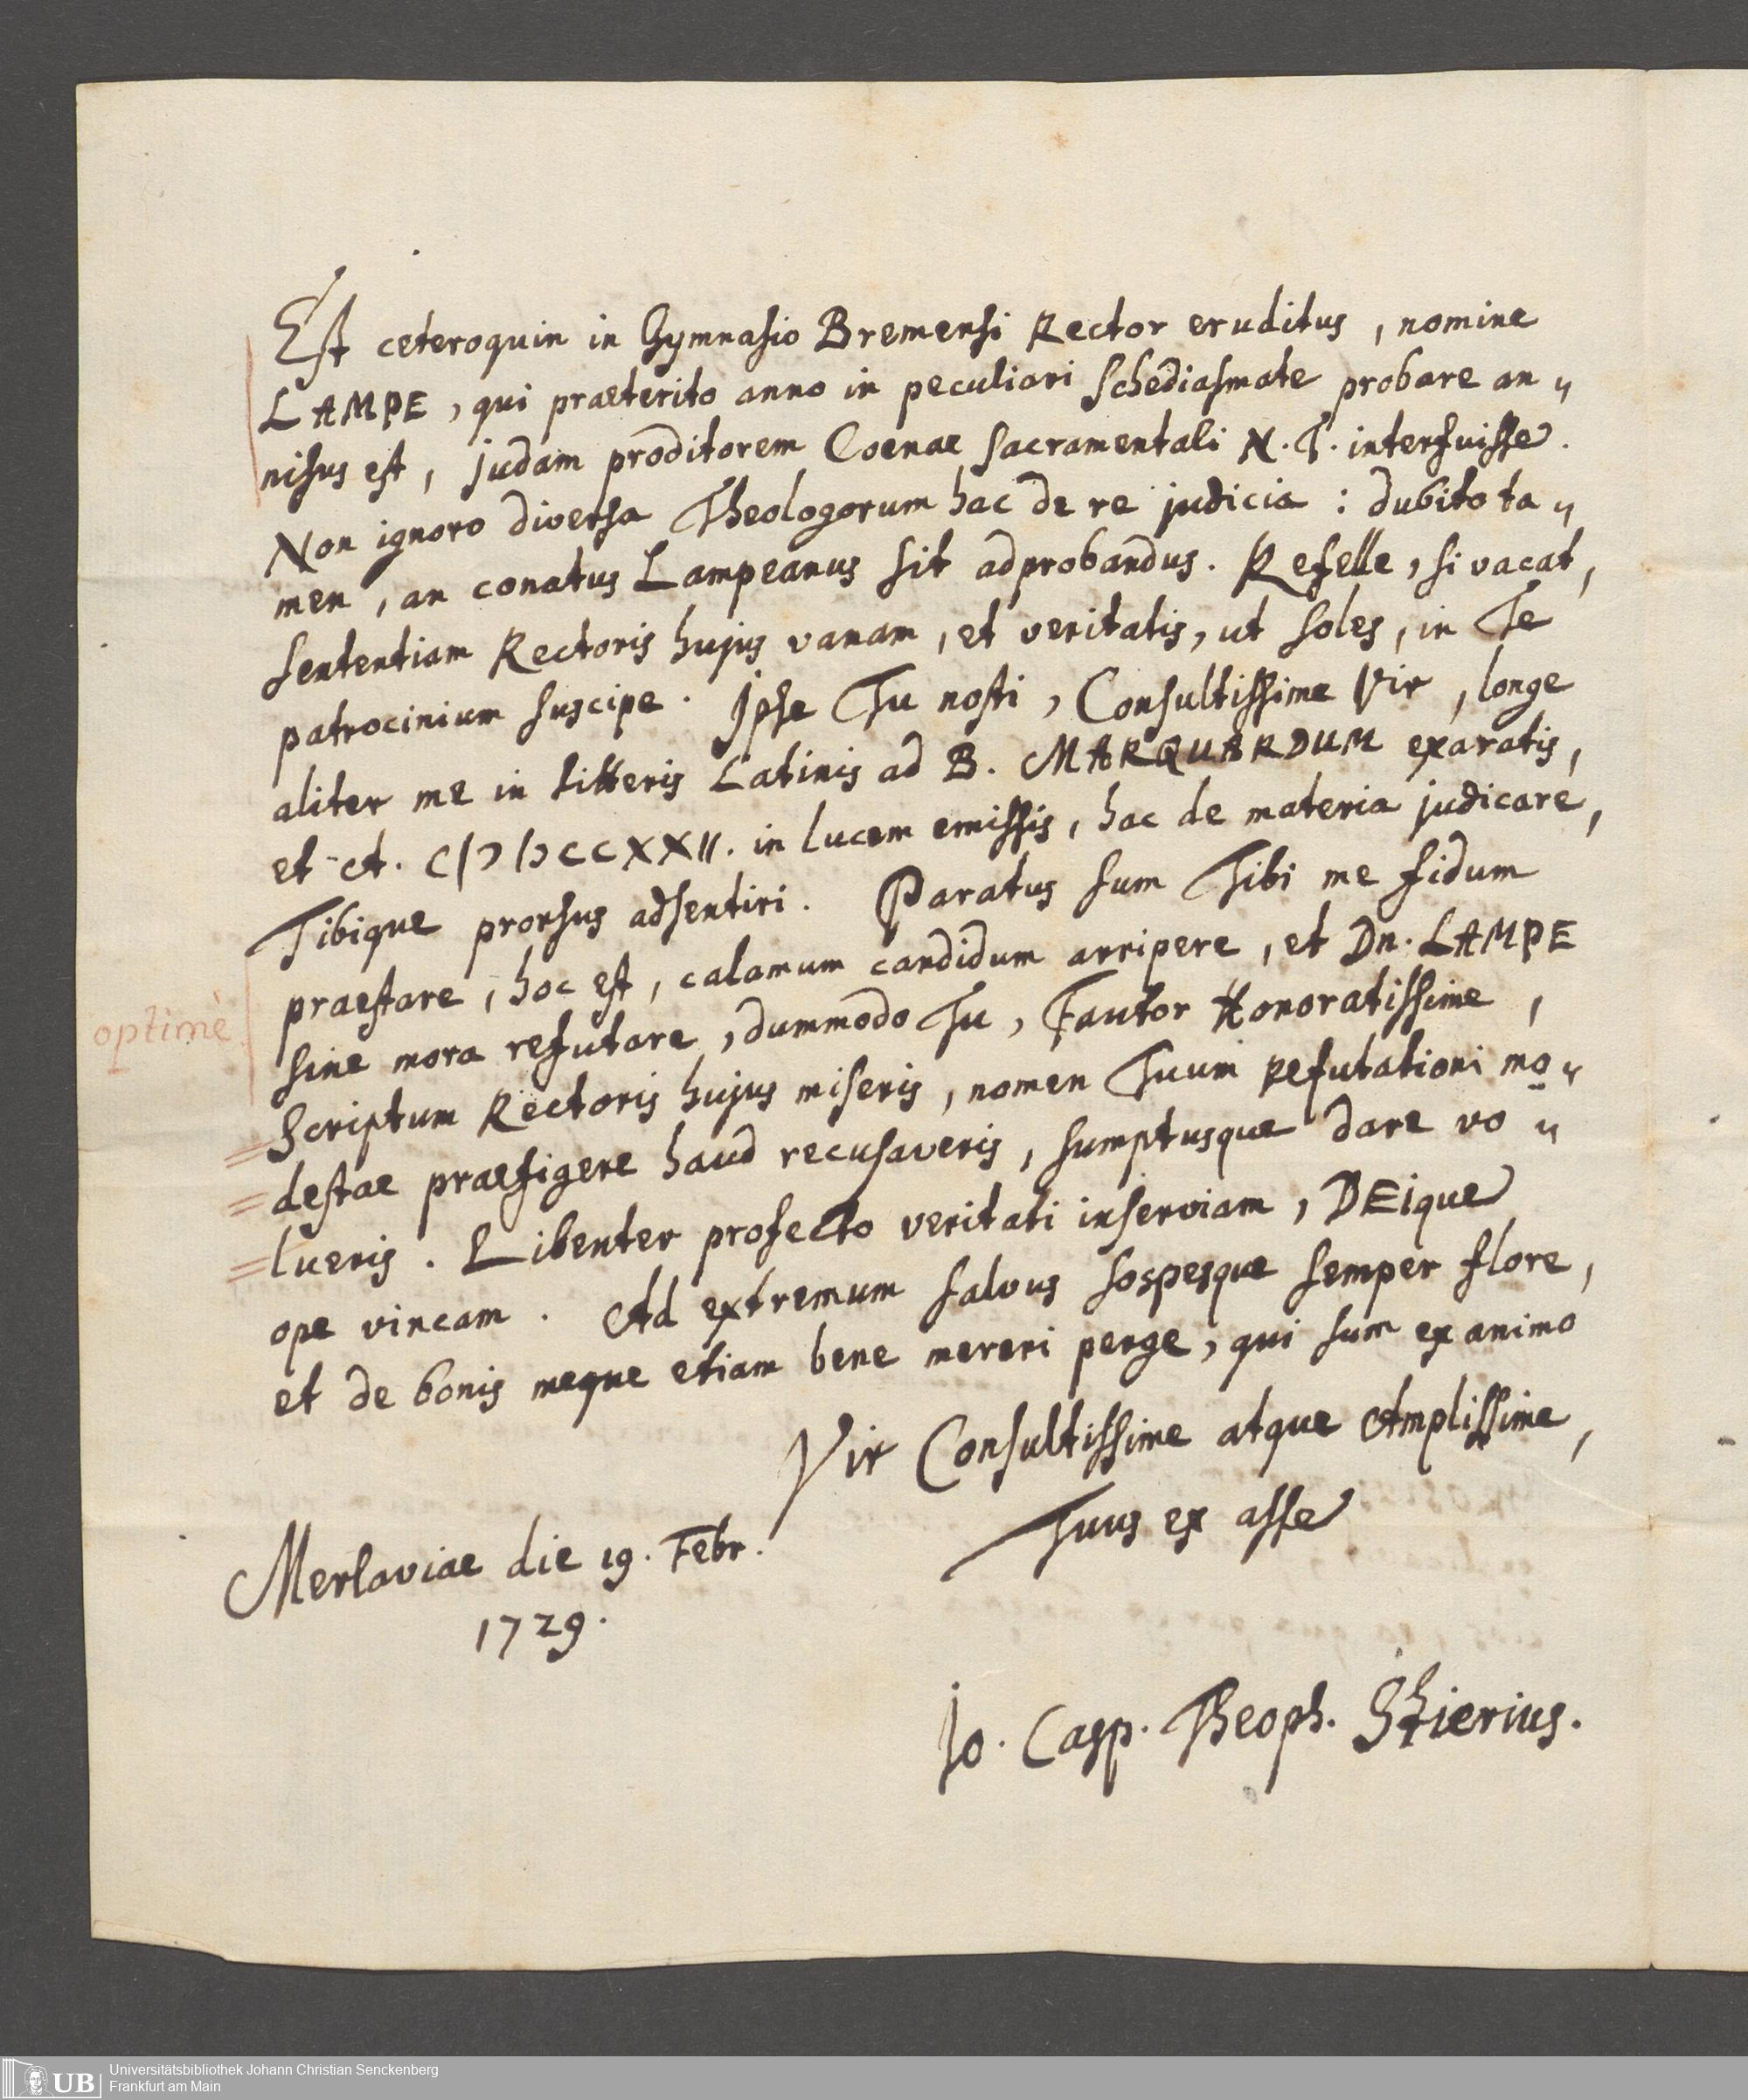 Est ceteroquin in Gymnasio Bremensi Rector eruditus, nomine
LAMPE, qui praeterito anno in peculiari Schediasmate probare an„
nisus est, Judam proditorem Coenae Sacramentali N. T. interfuisse.
Non ignoro diversa Theologorum hac de re judicia: dubito ta„
men, an conatus Lampeanus sit adprobandus. Refelle, si vacat,
sententiam Rectoris hujus vanam, et veritatis, ut soles, in Te
patrocinium suscipe. Ipse Tu nosti, Consultissime Vir, longe
aliter me in litteris Latinis ad B. MARQUARDUM exaratis,
et A. CIↃ IↃCCXXII. in lucem emissis, hac de materia judicare,
Tibique prorsus adsentiri. Paratus sum Tibi me fidum
praestare, hoc est, calamum candidum arripere, et Dn. LAMPE
optimè.
sine mora refutare, dummodo Tu, Fautor Honoratissime,
Scriptum Rectoris hujus miseris, nomen Tuum refutationi mo„
destae praefigere haud recusaveris, sumptusque dare vo„
lueris. Libenter profecto veritati inserviam, DEique
ope vincam. Ad extremum salvus sospesque semper flore,
et de bonis meque etiam bene mereri perge, qui sum ex animo
Vir Consultissime atque Amplissime,
Tuus ex asse
Merlaviae die 19. Febr.
1729.
Jo. Casp. Theoph. Stierius.
UB Universitätsbibliothek Johann Christian Senckenberg
Frankfurt am Main